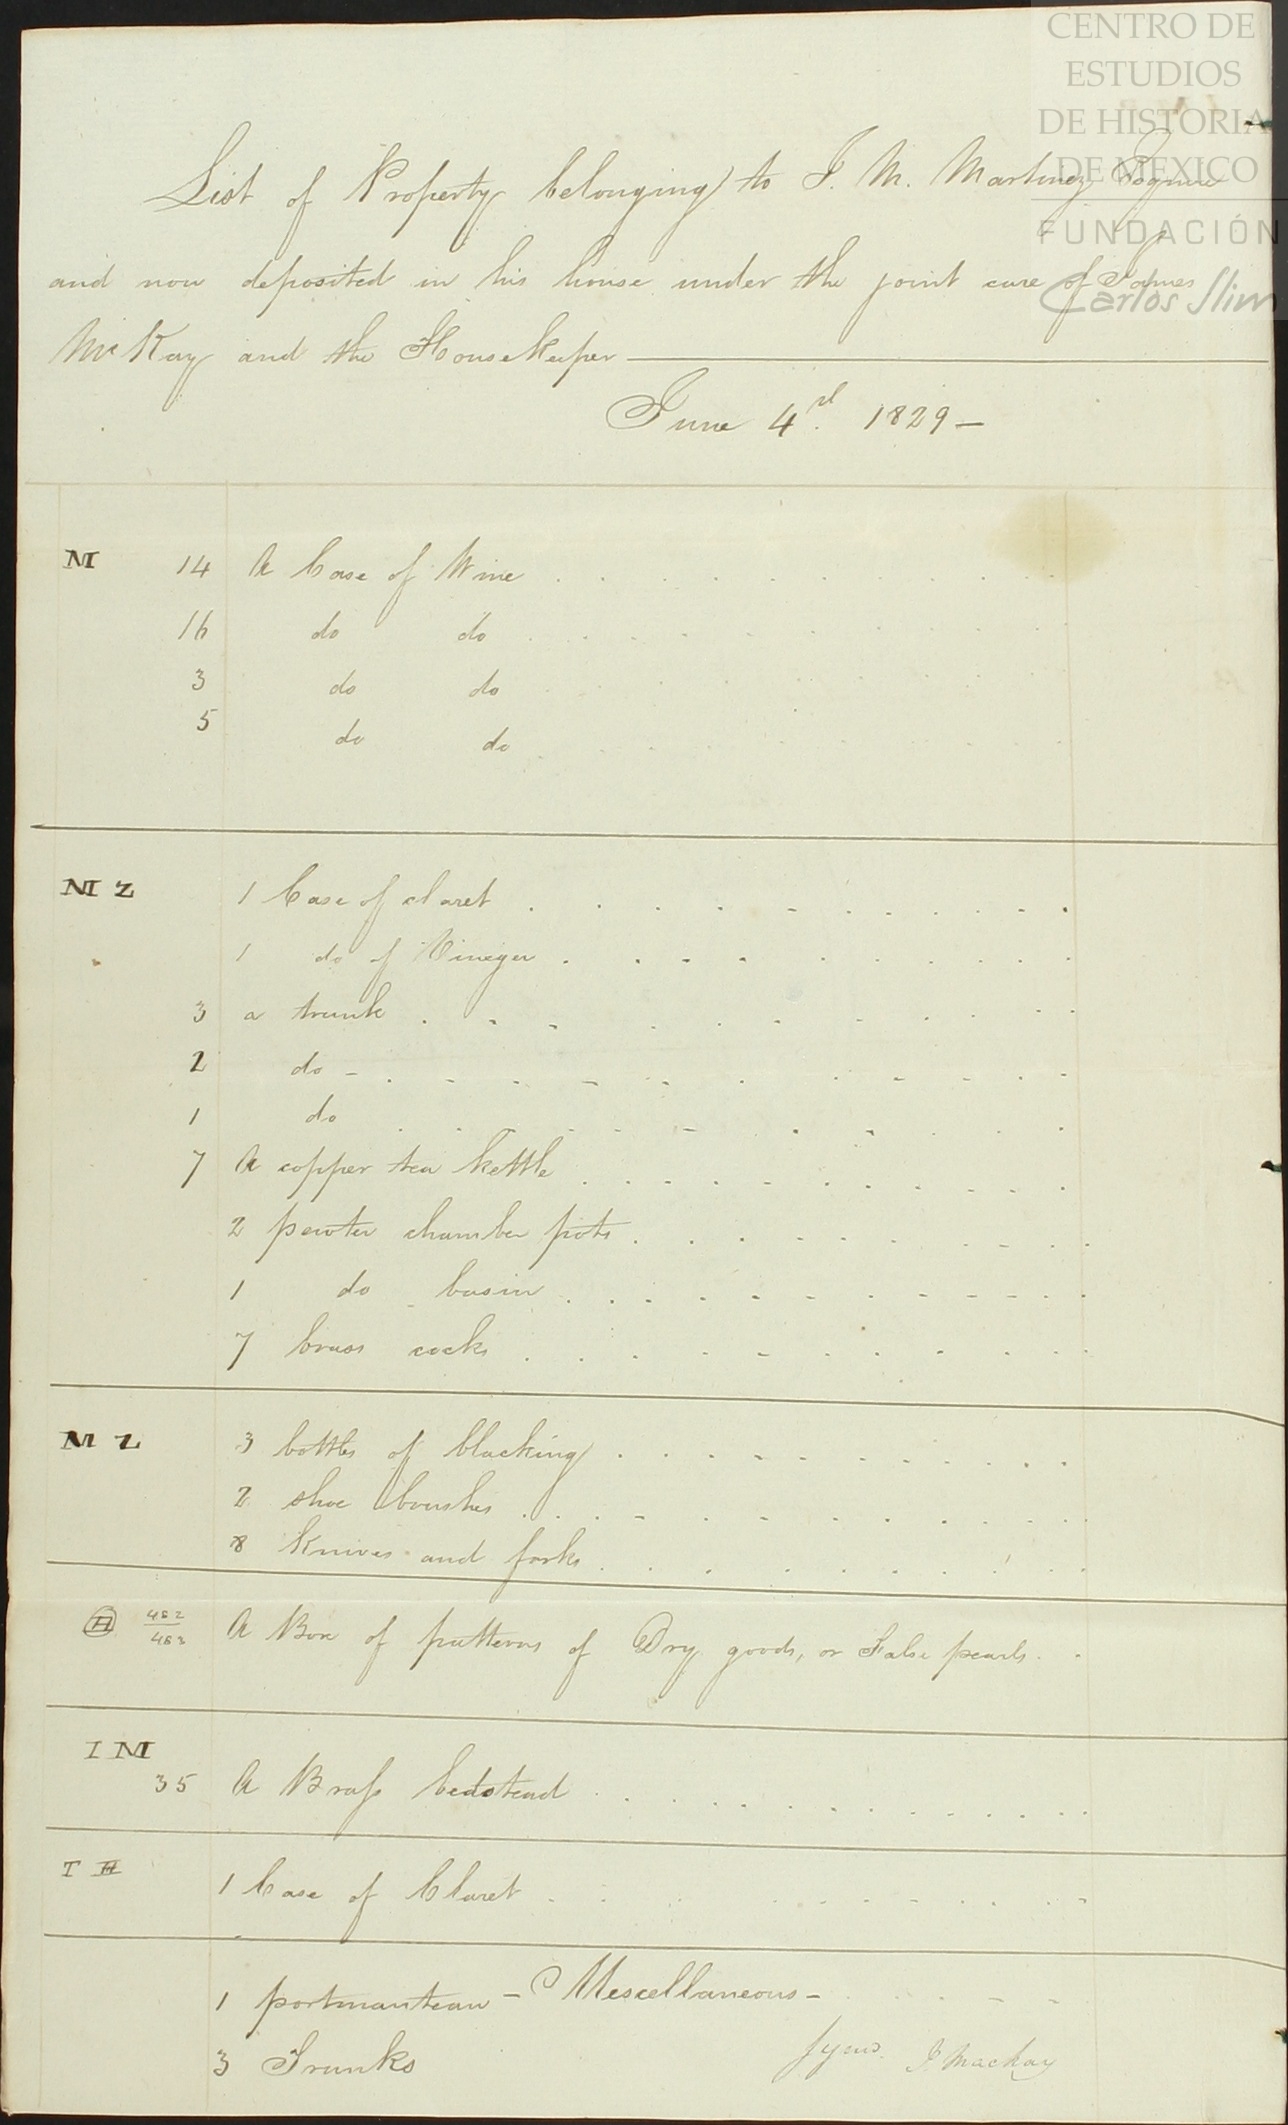 CENTRO DE
ESTUDIOS
DE HISTORIA
DE MEXICO
FUNDACIÓN
Carlos Slim
List of Property belonging to J. M. Martinez Esquire
and now deposited in his house under the joint care of James
McKay and the Housekeeper
June 4rd. 1829 —
M 14 A Case of Wine
16 do do
3 do do
5 do do
M Z 1 Case of claret
1 do of Vineger
3 a trunk
2 do -
1 do
7 A copper tea kettle
2 pewter chamber pots
1 do basin
7 brass cocks
M Z 3 bottles of blacking
2 shoe brushes
8 Knives and forks
H 482/483 A Box of patterns of Dry goods, or False pearls
I M
35 A Brass bedstead
I H 1 Case of Claret
1 portmanteau - Mescellaneous -
3 Trunks
J Mackay